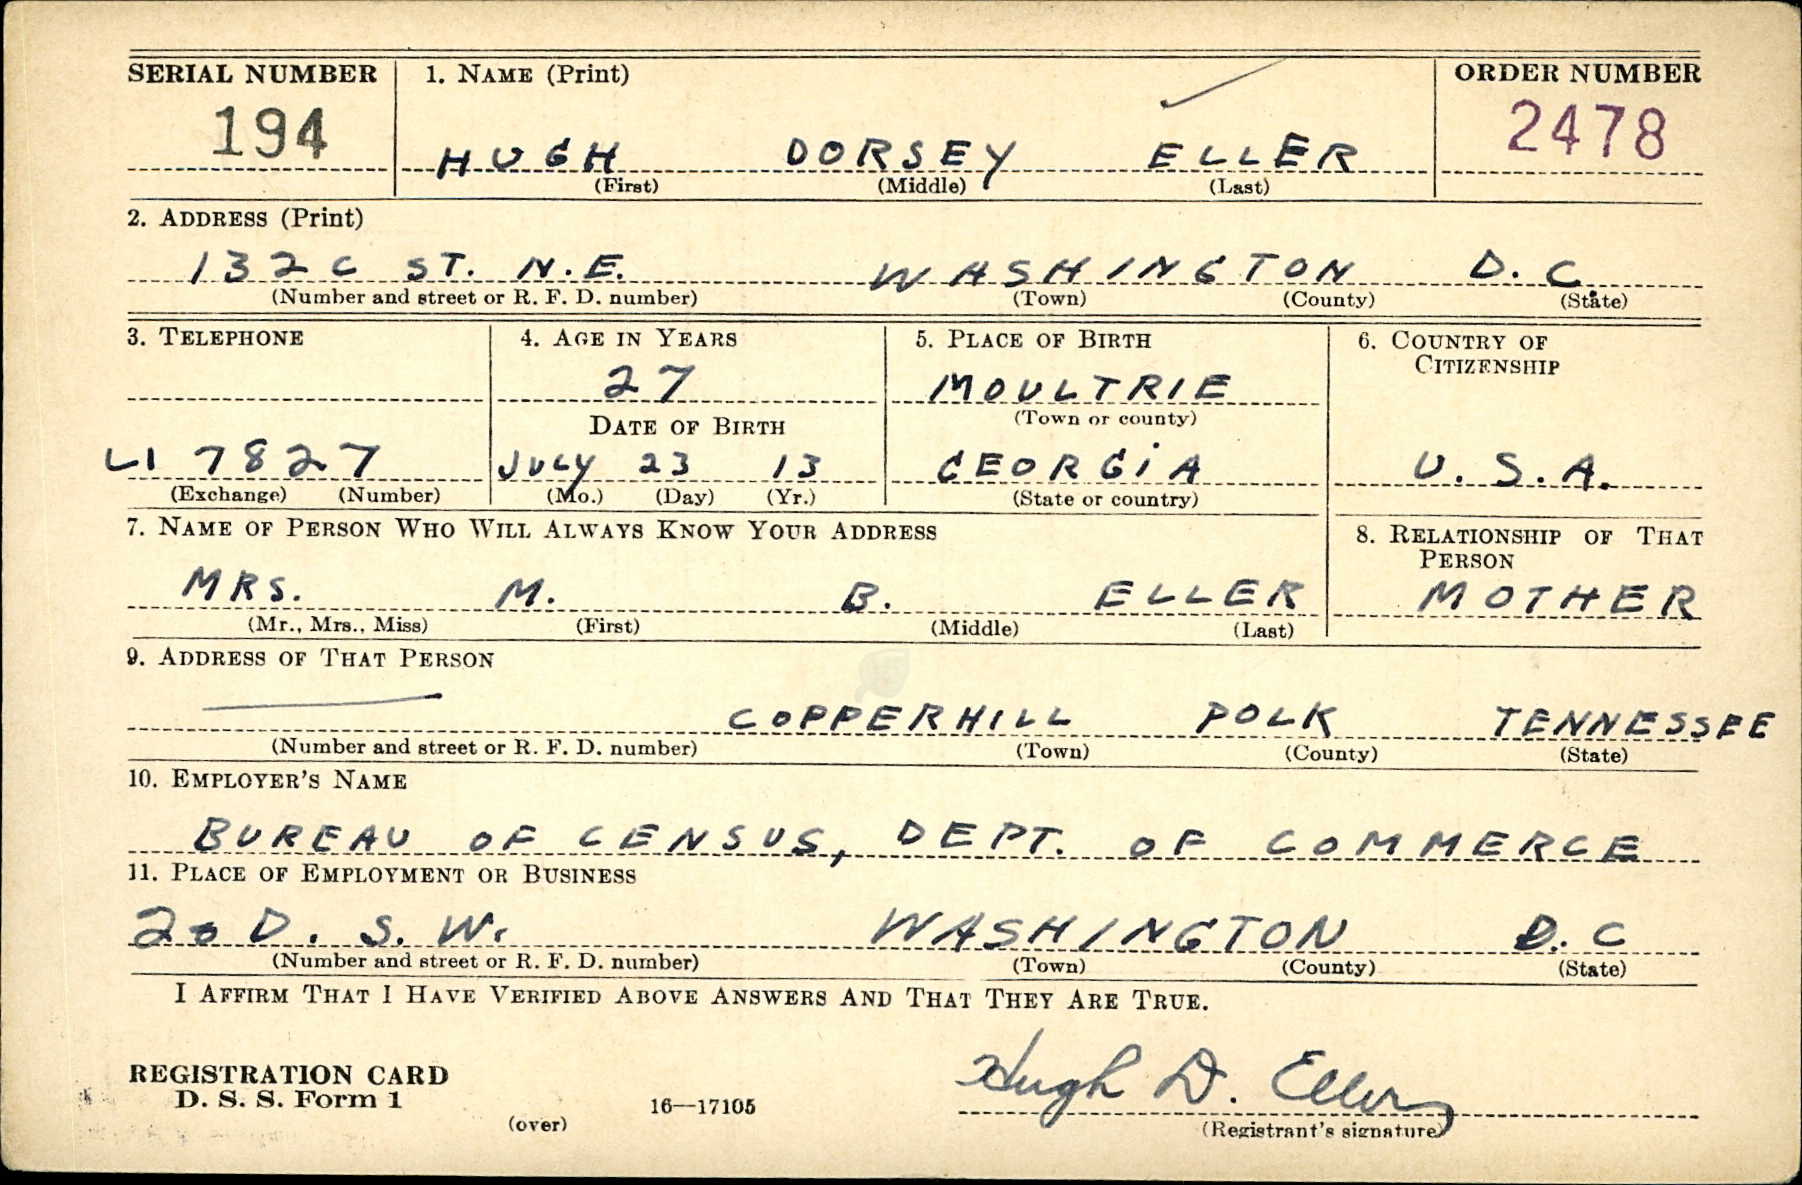 SERIAL NUMBER 1. NAME (Print) ORDER NUMBER
194 HUGH DORSEY ELLER 2478
(First) (Middle) (Last)
2. ADDRESS (Print)
132 C ST. N.E. WASHINGTON D. C.
(Number and street or R. F. D. number) (Town) (County) (State)
3. TELEPHONE 4. AGE IN YEARS 5. PLACE OF BIRTH 6. COUNTRY OF
CITIZENSHIP
27 MOULTRIE
DATE OF BIRTH (Town or county)
LI 7827 JULY 23 13 GEORGIA U. S. A.
(Exchange) (Number) (Mo.) (Day) (Yr.) (State or country)
7. NAME OF PERSON WHO WILL ALWAYS KNOW YOUR ADDRESS 8. RELATIONSHIP OF THAT
PERSON
MRS. M. B. ELLER MOTHER
(Mr., Mrs., Miss) (First) (Middle) (Last)
9. ADDRESS OF THAT PERSON
COPPERHILL POLK TENNESSEE
(Number and street or R. F. D. number) (Town) (County) (State)
10. EMPLOYER'S NAME
BUREAU OF CENSUS, DEPT. OF COMMERCE
11. PLACE OF EMPLOYMENT OR BUSINESS
D. S. W. WASHINGTON D. C
(Number and street or R. F. D. number) (Town) (County) (State)
I AFFIRM THAT I HAVE VERIFIED ABOVE ANSWERS AND THAT THEY ARE TRUE.
REGISTRATION CARD
D. S. S. Form 1 16—17105 Hugh D. Eller
(over) (Registrant's signature)